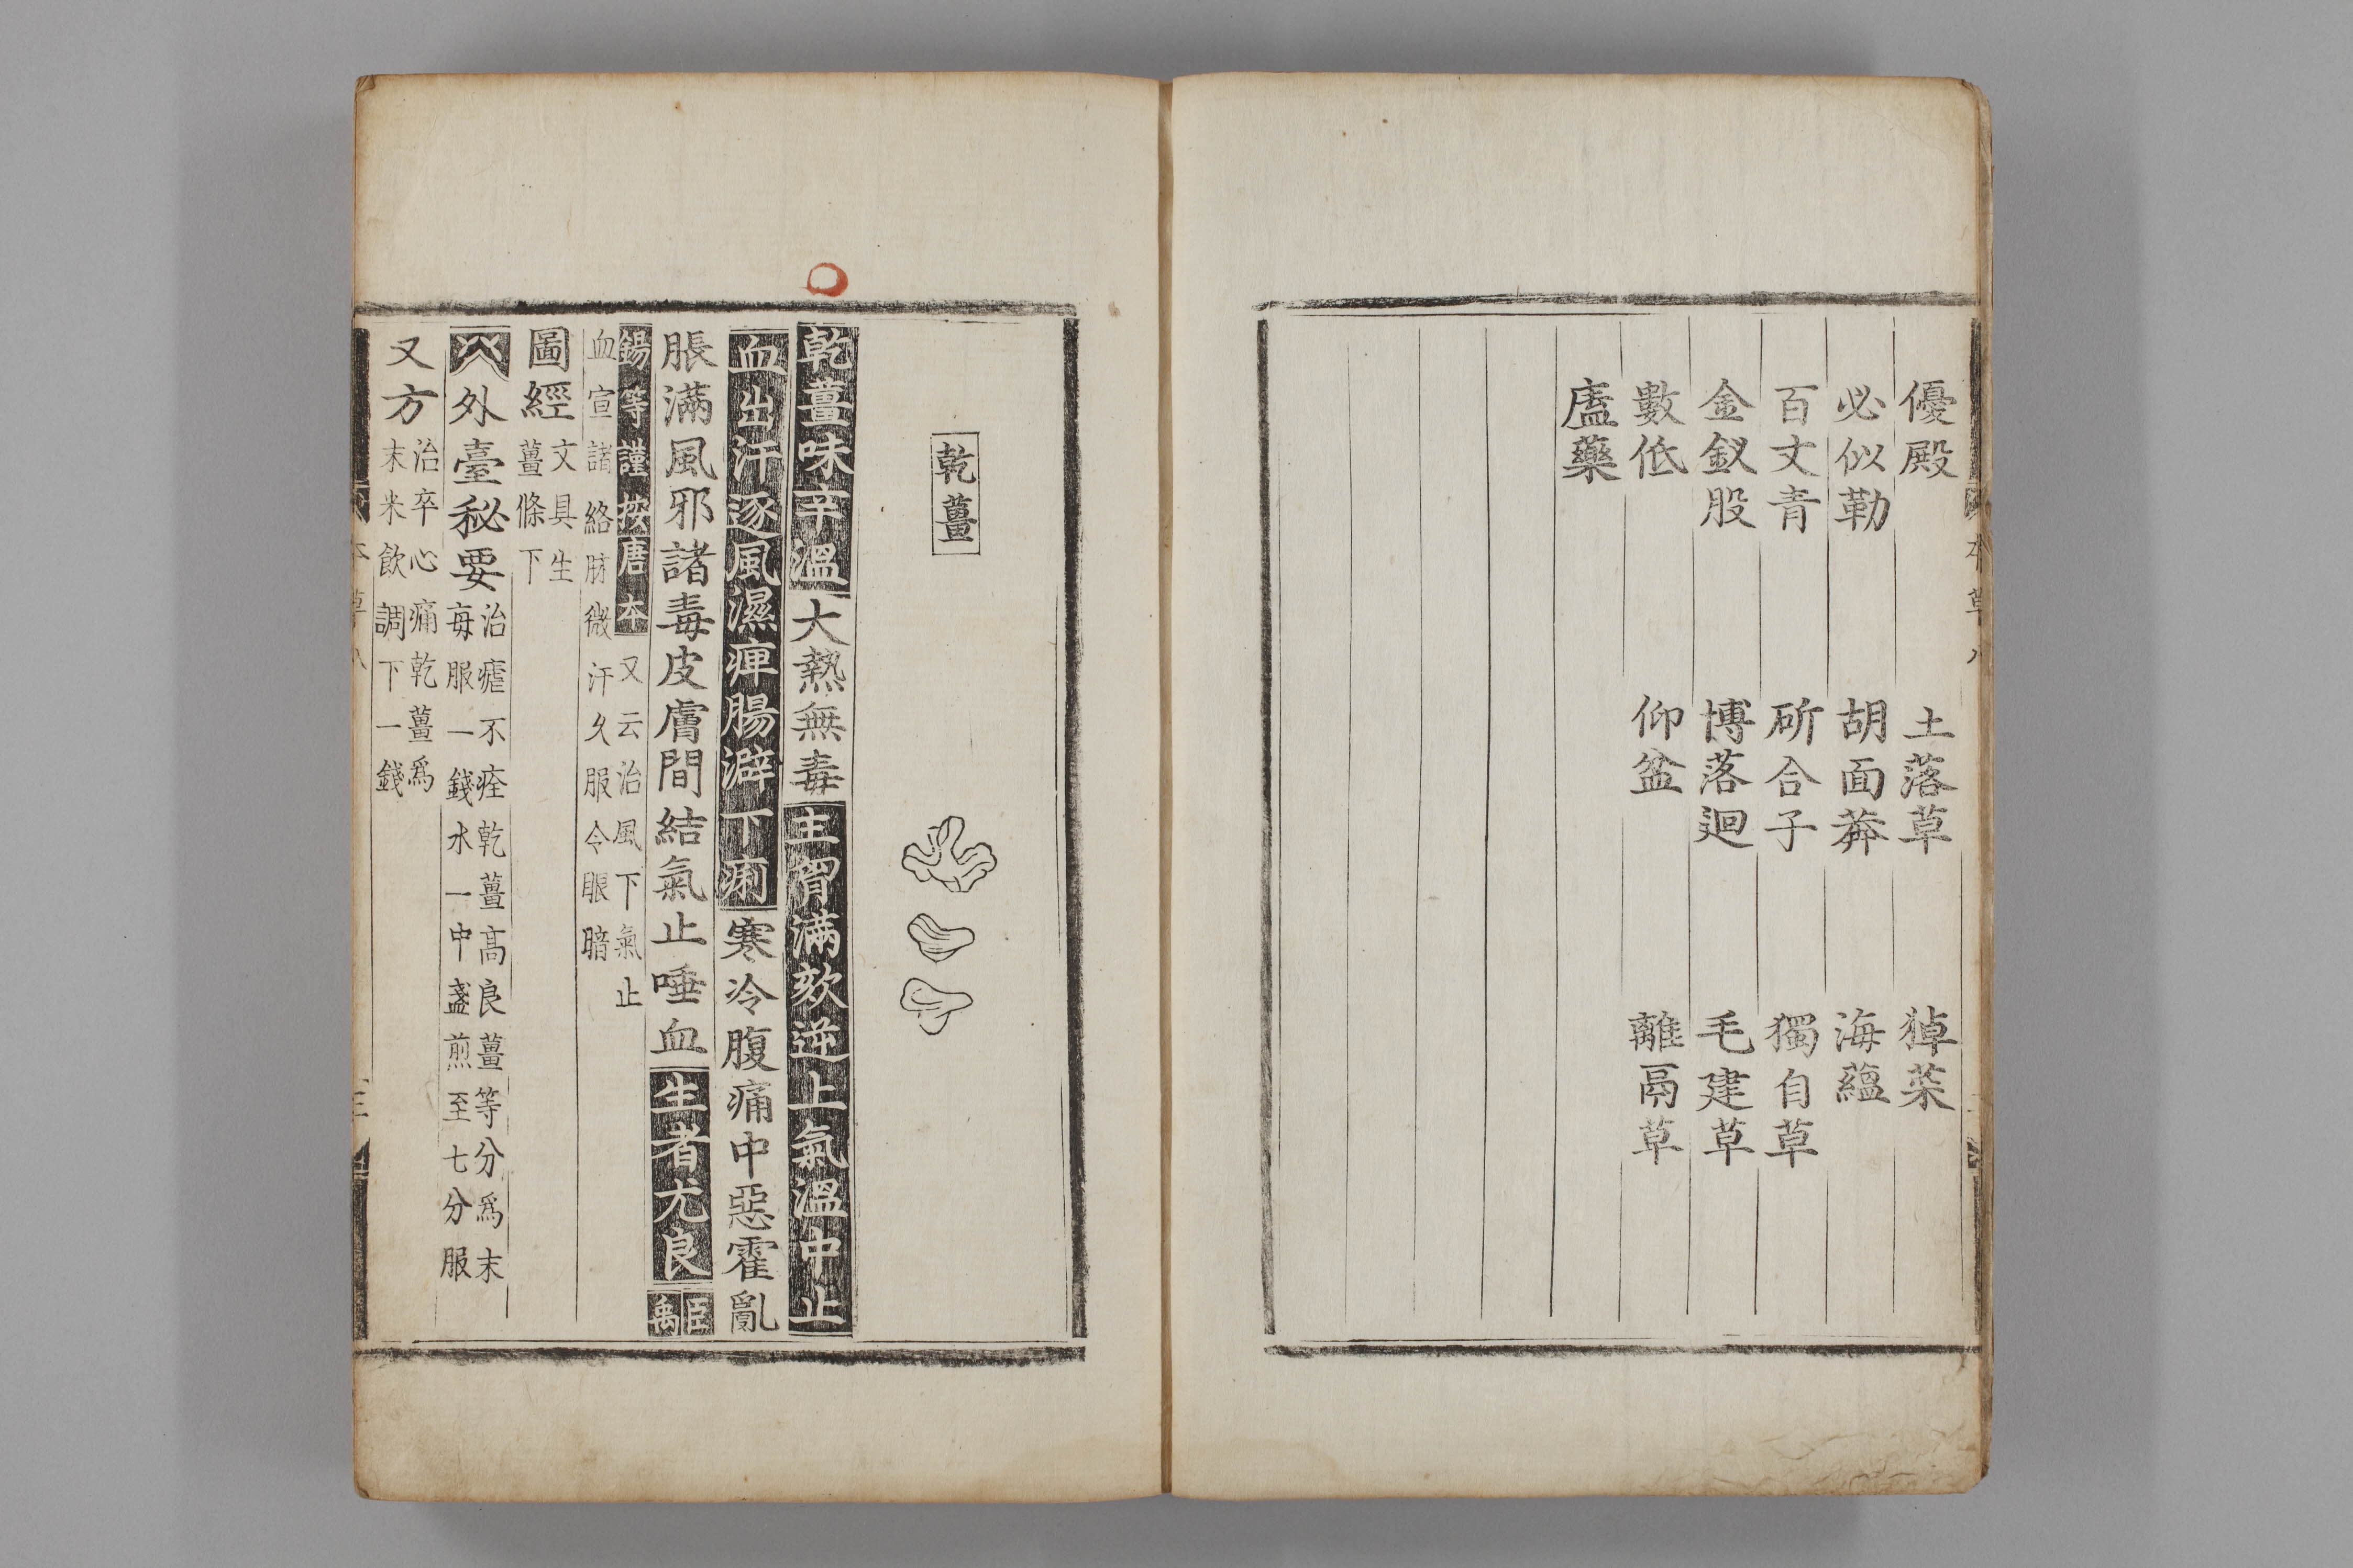 優殿　土落草　𤠔菜
必似勒　胡面莽　海蘊
百丈青　斫合子　獨自草
金釵股　博落迴　毛建草
數低　仰盆　離鬲草
廬藥
乾薑
乾薑味辛溫大熱無毒主胷滿欬逆上氣溫中止
血出汗逐風濕痺腸澼下痢寒冷腹痛中惡霍亂
脹滿風邪諸毒皮膚間結氣止唾血生者尤良臣禹
錫等謹按唐本又云治風下氣止
血宣諸絡脉微汗久服令眼暗
圖經文具生
薑條下
外臺秘要治瘧不痊乾薑高良薑等分爲末
每服一錢水一中盞煎至七分服
又方治卒心痛乾薑爲
末米飲調下一錢